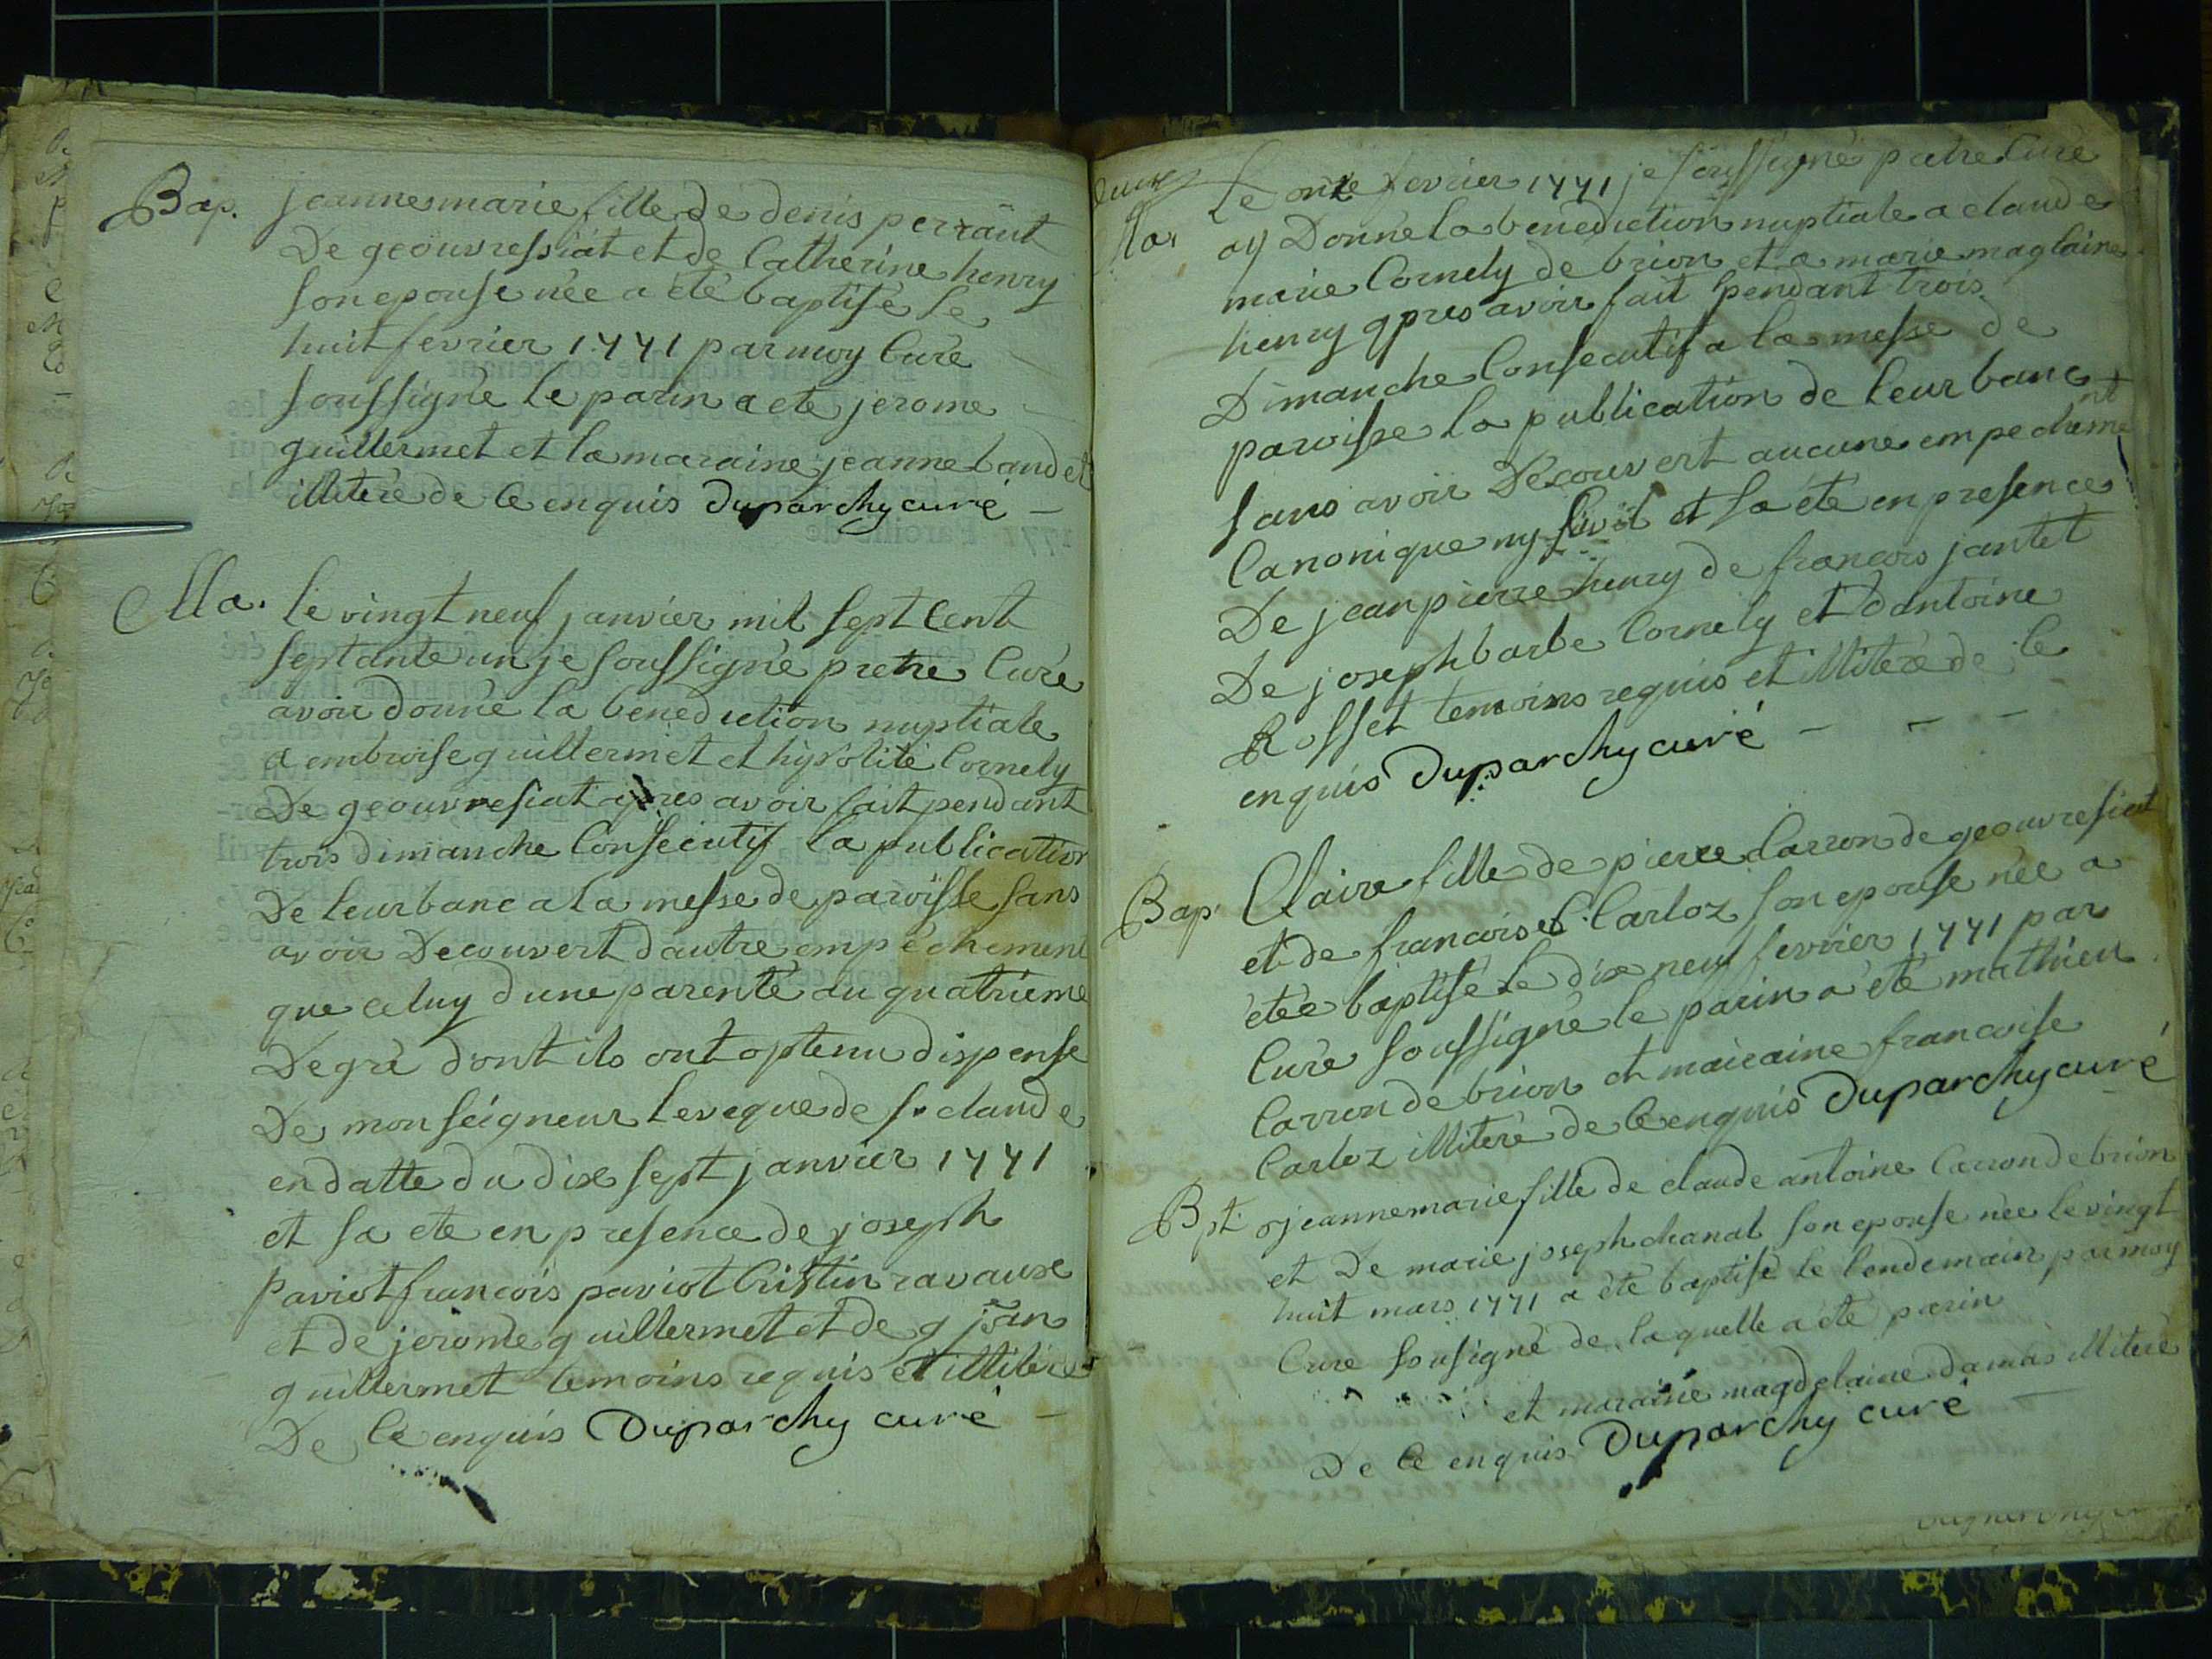 Bap. jeanne marie fille de denis perraut
De geouvressiat et de Catherine henry
son epouse née a été baptisé le
huit fevrier 1771 par moy Curé
soussigné le parin a eté jerome
guillermet et la maraine jeanne baudet
illiteré de ce enquis Duparchy curé -
Ma. le vingt neuf janvier mil sept Cent
septante un je soussigné pretre Curé
avoir donné la benediction nuptiale
a embroise guillermet et hipolite Cornely
De geouvresiat apres avoir fait pendant
trois dimanche Consecutif la publication
De leur banc a la messe de paroisse sans
avoir Decouvert dautre empechement
que celuy dune parenté au quatrieme
Degré dont ils ont optenu dispense
De monseigneur leveque de st claude
en datte du dix sept janvier 1771
et sa eté en presence de joseph
paviot francois paviot Cristin ravaux
et de jerome guillermet et de
guillermet temoins requis et illiteré
De Ce enquis Duparchy curé -
Ma. Le onze fevrier 1771 je soussigné pretre Curé
ay Donné la benediction nuptiale a claude
marie Cornely de brion et a marie maglaine
henry apres avoir fait pendant trois
Dimanche Consecutif a la messe de
paroisse la publication de leur banc
sans avoir Decouvert aucune empechement
Canonique ny sivil et sa été en presence
De jean pierre henry de francois jantet
De joseph barbe Cornely et dantoine
Rosset temoins requis et illiteré de Ce
enquis Duparchy curé - - -
Bap. Claire fille de pierre Carron de geouvresiat
et de francoise Carloz son epouse née a
étée baptisé le dix neuf fevrier 1771 par
Curé soussigné le parin a été mathieu
Carron de brion et maraine francoise
Carloz illiteré de Ce enquis Duparchy curé
Bpt. jeanne marie fille de claude antoine Carron de brion
et De marie joseph chanal son epouse née le vingt
huit mars 1771 a été baptisé le lendemain par moy
Curé sousigné de laquelle a eté parin
et maraine magdelaine damas illiteré
De Ce enquis Duparchy curé